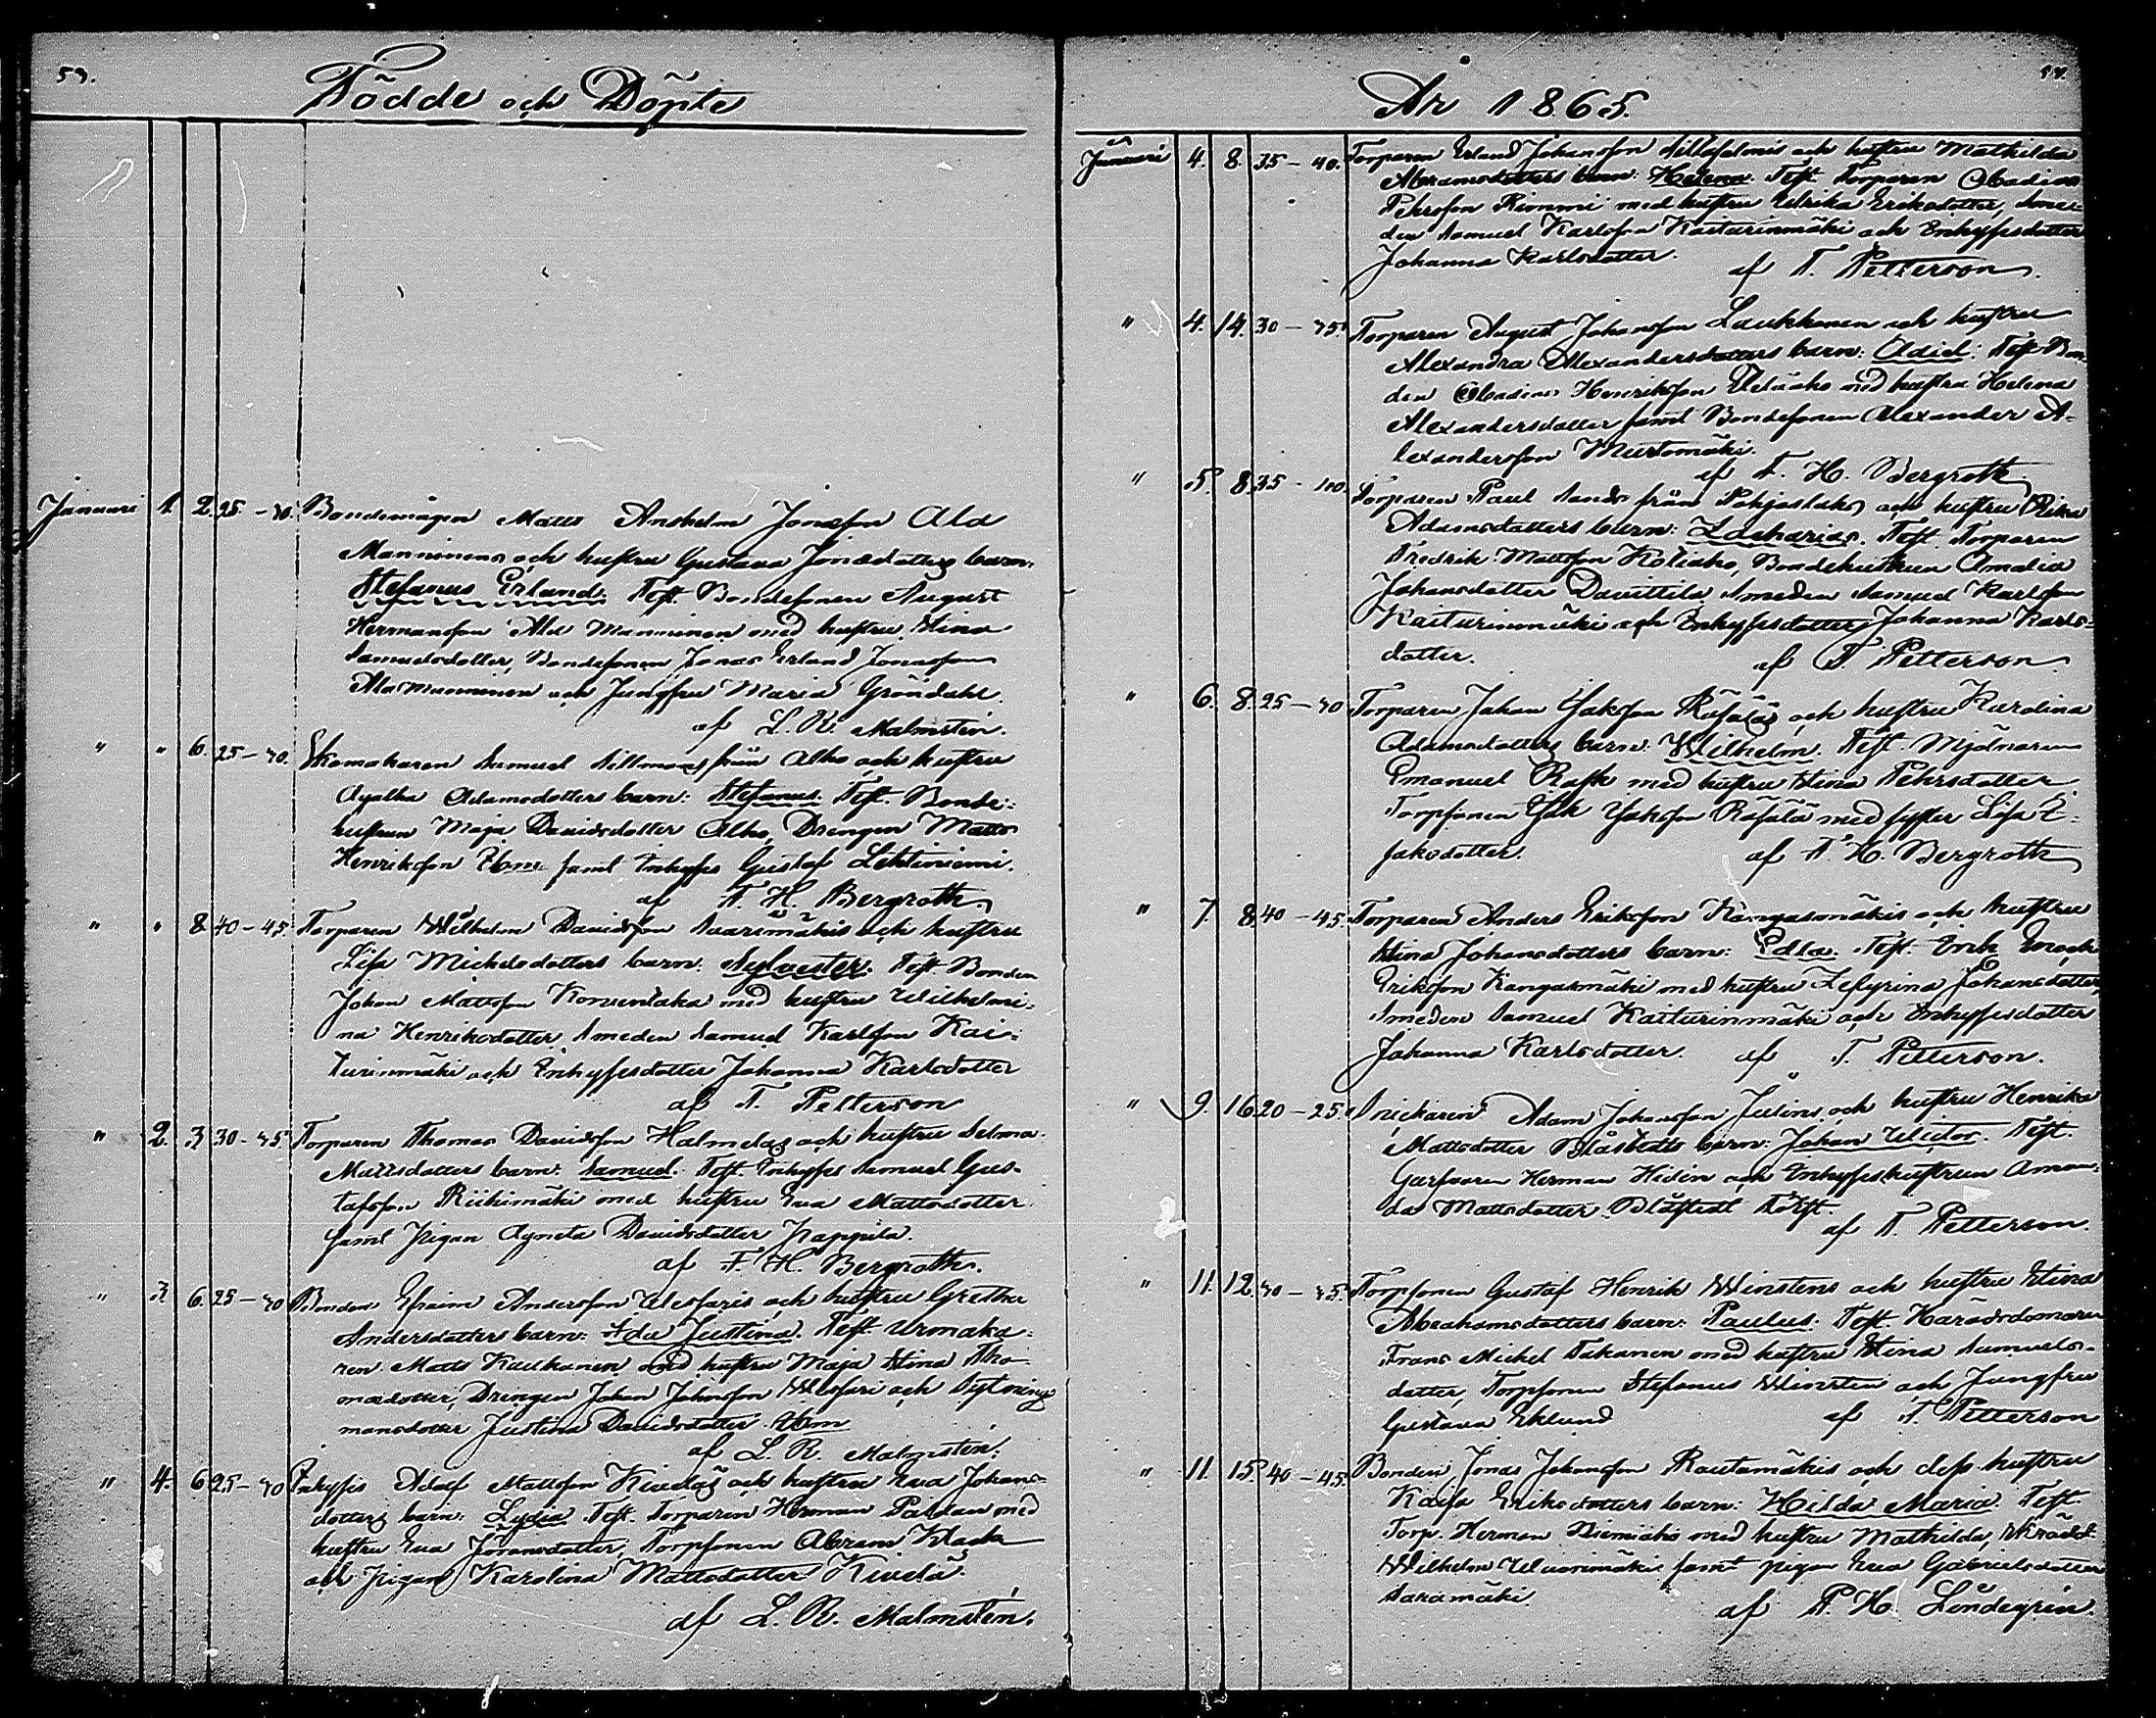 53.
Födde och Döpte
Januari 1. 2. 25-30. Bondemågen Matts Anshelm Jonasson Ala
Manninens och hustru Gustava Jonædotters barn:
Stefanus Erland. Test. Bondesonen August
Hermansson Ala Manninen med hustru Stina
Samuelsdotter, Bondesonen Jonas Erland Jonasson
Ala Manninen och Jungfru Maria Gröndahl.
af L. R. Malmstén.
" " 6. 25-30. Skomakaren Samuel Sillmans från Alho och hustru
Agatha Adamsdotters barn: Stefanus. Test. Bonde-
hustrun Maja Davidsdotter Alho, Drengen Matts
Henriksson ibm samt Inhyses Gustaf Lehtiniemi.
af F. H. Bergroth.
" " 8. 40-45. Torparen Wilhelm Davidsson Saarimäkis och hustru
Lisa Mickelsdotters barn: Sylvester. Test. Bonden
Johan Mattsson Korvenlaka med hustru Wilhelmi-
na Henriksdotter, Smeden Samuel Karlsson Kai-
turinmäki och Inhysesdotter Johanna Karlsdotter
af T. Petterson
" 2. 3. 30-35. Torparen Thomas Davidsson Halmelas och hustru Selma
Mattsdotters barn: Samuel. Test. Inhyses Samuel Gus-
tafsson Riihimäki med hustru Eva Mattsdotter
samt Pigan Agneta Davidsdotter Pappila.
af F. H. Bergroth.
" 3. 6. 25-30. Bonden Efraim Andersson Wesfaris och hustru Gretha
Andersdotters barn: Ida Justina. Test. Urmaka-
ren Matts Kauhanen med hustru Maja Stina Tho-
mædotter, Drengen Johan Johansson Wesfari och Sytnings
mansdotter Justina Davidsdotter ibm
af L. R. Malmstén.
" 4. 6. 25-30. Inhyses Adolf Mattsson Kiveläs och hustru Eva Johans-
dotters barn: Lydia. Test. Torparen Herman Paldan med
hustru Eva Johansdotter, Torpsonen Abram
och Pigan Karolina Mattsdotter Kivelä.
af L. R. Malmstén.
År 1865.
Januari 4. 8. 35-40. Torparen Erland Johansson Sillasalmis och hustru Mathilda
Abramsdotters barn: Helena. Test. Torparen Obadias
Pehrsson Kimmi med hustru Ulrika Eriksdotter, Sme-
den Samuel Karlsson Kaiturinmäki och Inhysesdotter
Johanna Karlsdotter.
af T. Petterson.
" 4. 14. 30-35. Torparen August Johansson Laukkonen och hustru
Alexandra Alexandersdotters barn: Adiel. Test. Bon-
den Obadias Henriksson med hustru Helena
Alexandersdotter samt Bondesonen Alexander A-
lexandersson Murtomäki.
af F. H. Bergroth
" 5. 8. 35-40. Torparen Paul Sands från Pohjoslaks och hustru Rika
Adamsdotters barn: Zacharias. Test. Torparen
Fredrik Mattsson Koliaho, Bondehustrun Amalia
Johansdotter Davittila, Smeden Samuel Karlsson
Kaiturinmäki och Inhysesdotter Johanna Karls-
dotter.
af T. Petterson
" 6. 8. 25-30. Torparen Johan Jaksson Räsäläs och hustru Karolina
Adamsdotters barn: Wilhelm. Test. Mjölnaren
Emanuel Rask med hustru Stina Pehrsdotter
Torpsonen Isak Isaksson Räsälä med syster Lisa I-
saksdotter.
af F. H. Bergroth
" 7. 8. 40-45. Torparen Anders Eriksson Kangasmäkis och hustru
Stina Johansdotters barn: Edla. Test. Inh. Enoch
Eriksson Kangasmäki med hustru Zefyrina Johansdotter,
Smeden Samuel Kaiturinmäki och Inhysesdotter
Johanna Karlsdotter.
af T. Petterson.
" 9. 16. 20-25. Snickaren Adam Johansson Julins och hustru Henrika
Mattsdotter Blåstedts barn: Johan Victor. Test.
Garfvaren Herman Hidén och Inhyseshustrun Aman-
da Mattsdotter Blåstedt
af T. Petterson.
" 11. 12. 30-35. Torpsonen Gustaf Henrik Winstens och hustru Stina
Abrahamsdotters barn: Paulus. Test. Häradsdomaren
Frans Mickel Takanen med hustru Stina Samuels-
dotter, Torpsonen Stefanus Winsten och Jungfru
Gustava Eklund
af T. Petterson
" 11. 15. 40-45. Bonden Jonas Johansson Rautamäkis och dess hustru
Kaisa Eriksdotters barn: Hilda Maria. Test.
Torp. Herman Niemiaho med hustru Mathilda, Skrädd.
Wilhelm Wuorimäki samt pigan Eva Gabrielsdotter
Saramäki
af P. H. Lindegrén.